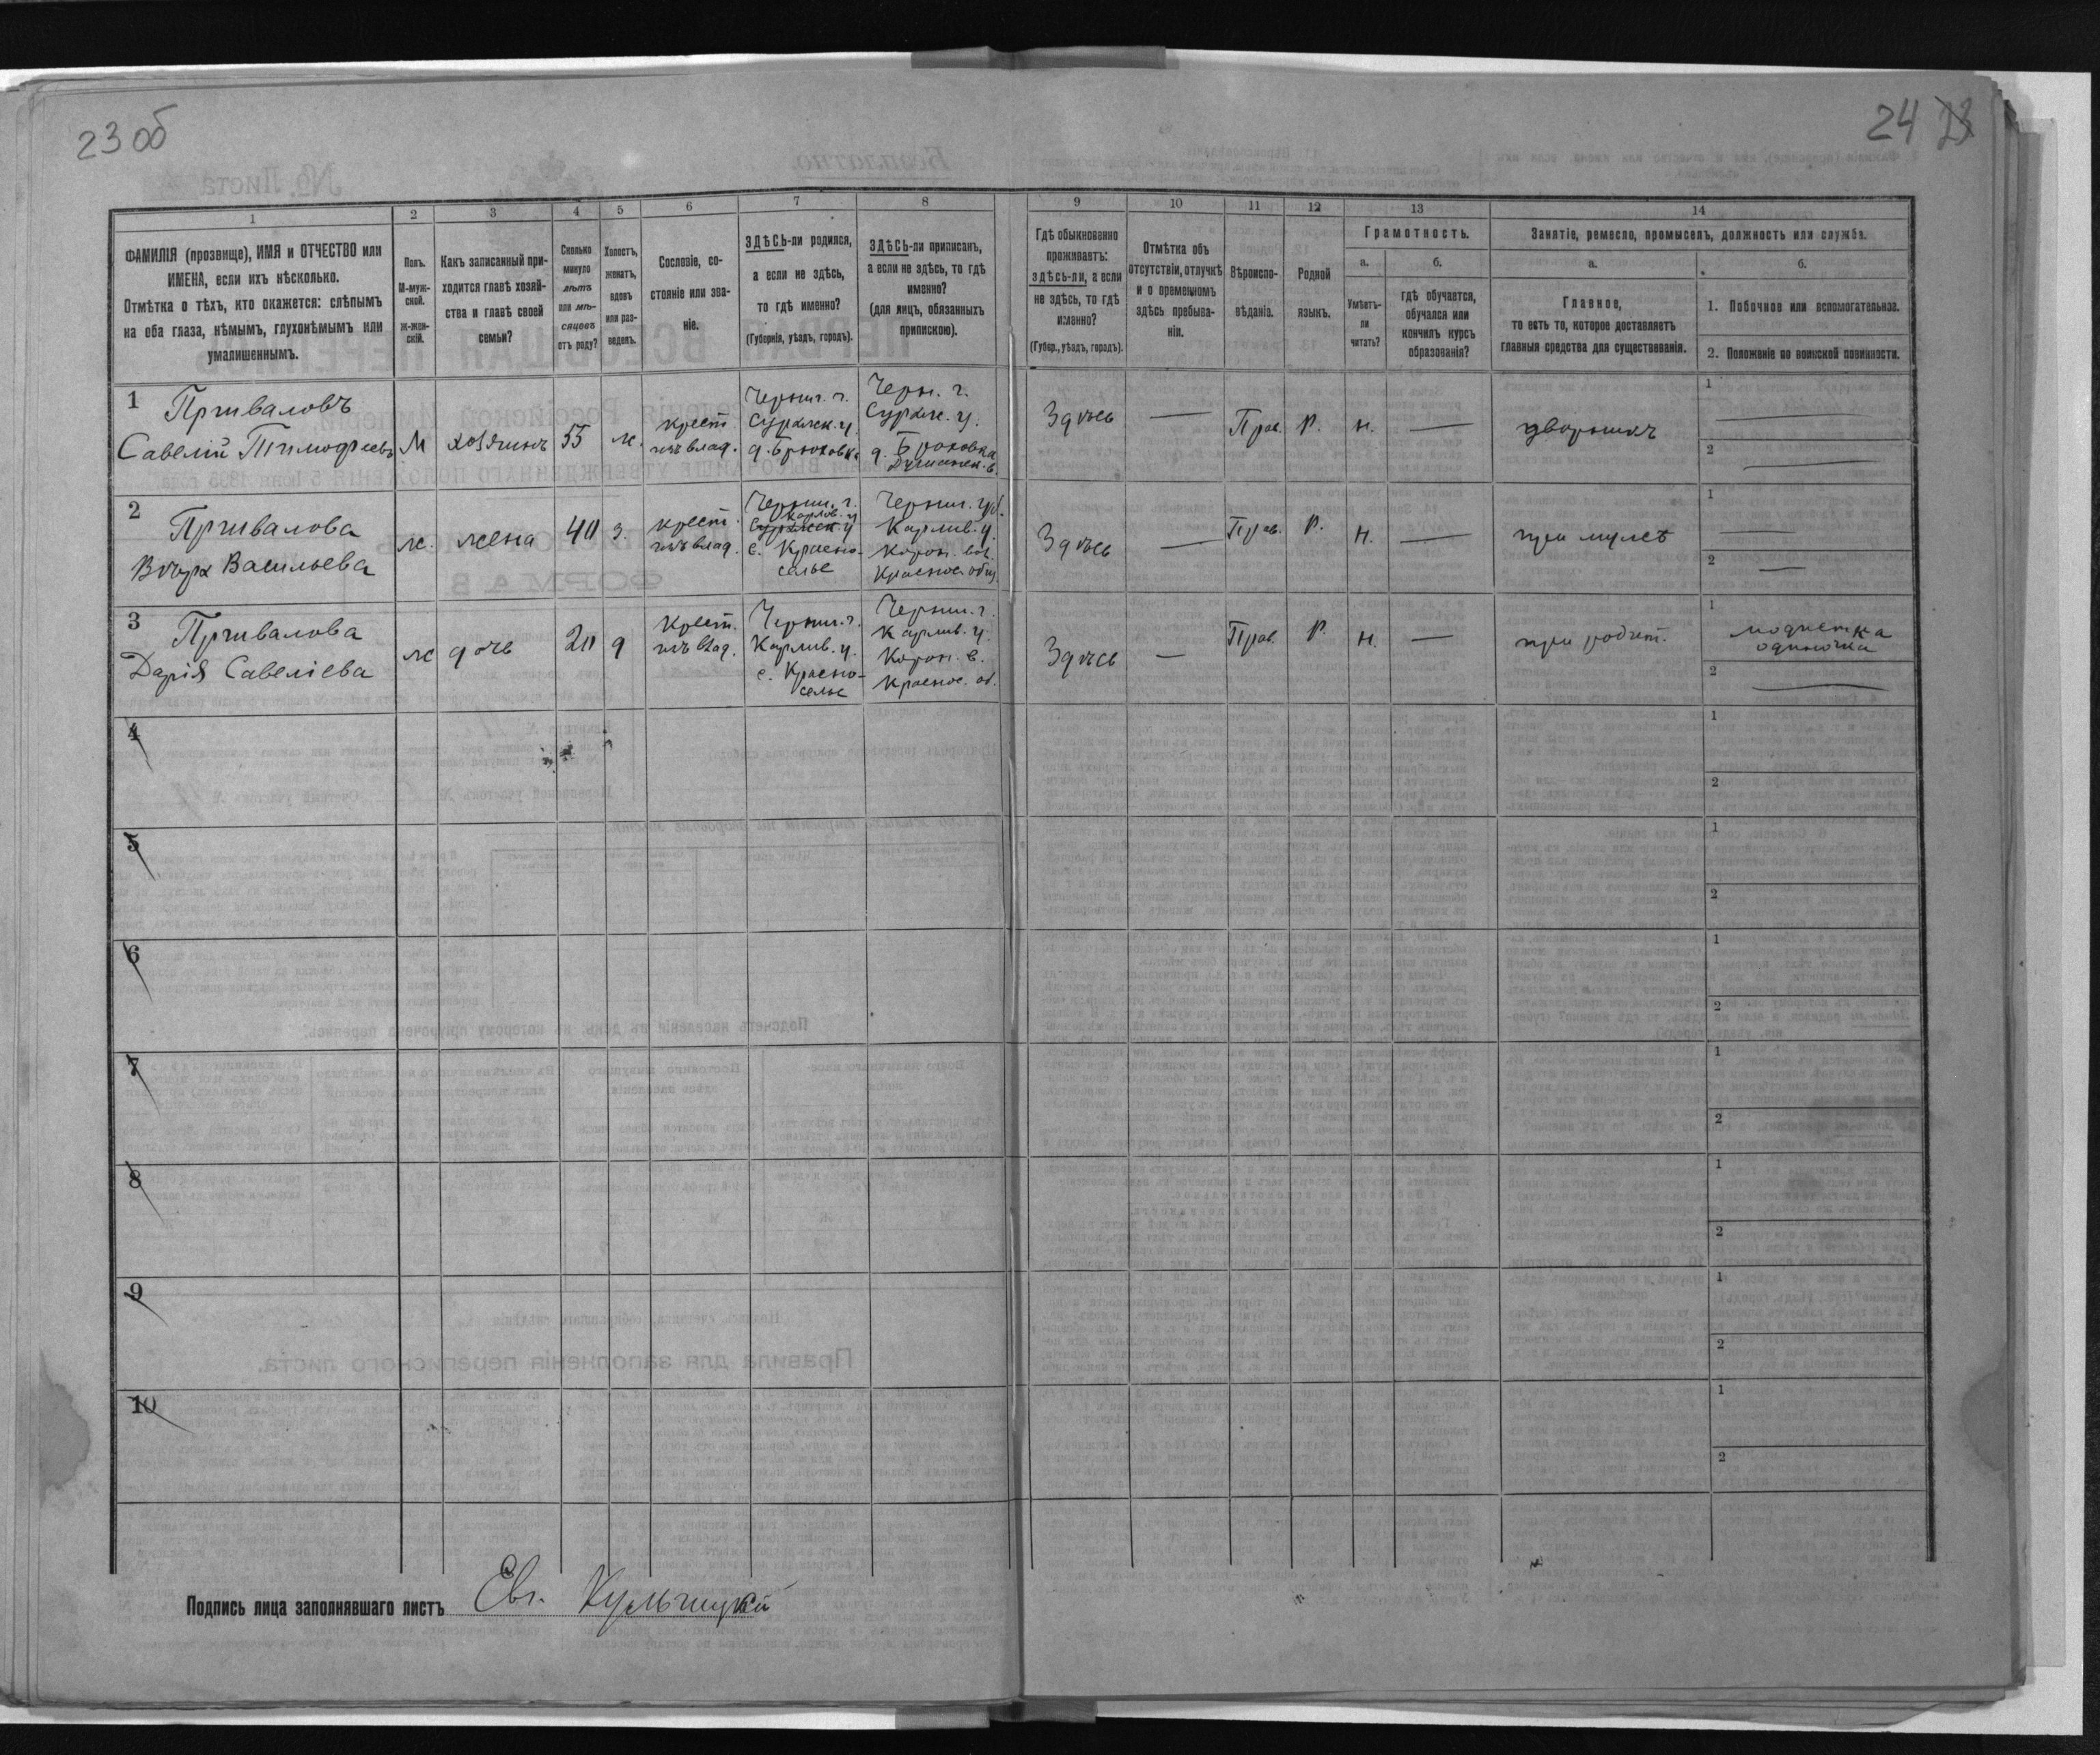 23 об
24 23
1
2
3
4
5
6
7
8
ФАМИЛІЯ (прозвище), ИМЯ и ОТЧЕСТВО или
ИМЕНА, если ихъ нѣсколько.
Отмѣтка о тѣхъ, кто окажется: слѣпымъ
на оба глаза, нѣмымъ, глухонѣмымъ или
умалишеннымъ.
Полъ.
М-муж-
ской.
Ж-жен-
скій.
Какъ записанный при-
ходится главѣ хозяй-
ства и главѣ своей
семьи?
Сколько
минуло
лѣтъ
или мѣ-
сяцевъ
отъ роду?
Холостъ,
женатъ,
вдовъ
или раз-
веденъ.
Сословіе, со-
стояніе или зва-
ніе.
ЗДѢСЬ-ли родился,
а если не здѣсь,
то гдѣ именно?
(Губернія, уѣздъ, городъ).
ЗДѢСЬ-ли приписанъ,
а если не здѣсь, то гдѣ
именно?
(для лицъ, обязанныхъ
припискою).
9
10
11
12
13
14
Гдѣ обыкновенно
проживаетъ:
здѣсь-ли, а если
не здѣсь, то гдѣ
именно?
(Губер., уѣздъ, городъ).
Отмѣтка объ
отсутствіи, отлучкѣ
и о временномъ
здѣсь пребыва-
ніи.
Вѣроиспо-
вѣданіе.
Родной
языкъ.
Грамотность.
а.
Умѣетъ-
ли
читать?
б.
гдѣ обучается,
обучался или
кончилъ курсъ
образованія?
Занятіе, ремесло, промыселъ, должность или служба.
а.
Главное,
то есть то, которое доставляетъ
главныя средства для существованія.
б.
1. Побочное или вспомогательное.
2. Положеніе по воинской повинности.
1 Приваловъ
Савелій Тимофеевъ
М
хозяинъ
55
ж.
крест.
изъ влад.
Черниг. г.
Суражск. у.
д. Брюховка
Черн. г.
Сураж. у.
д. Брюховка
Здѣсь
—
Прав.
Р.
н.
—
дворникъ
1
2
2 Привалова
Вѣра Васильева
ж.
жена
40
з.
крест.
изъ влад.
Черниг. г.
Суражск у
с. Красно-
селье
Черниг. губ.
Здѣсь
—
Прав.
Р.
н.
—
при мужѣ
1
2
3 Привалова
Дарія Савеліева
ж
дочь
20
д
Крест.
изъ влад.
Черниг. г.
с. Красно-
селье
Черниг. г.
Здѣсь
—
Прав.
Р.
н.
—
при родит.
1 модистка
одиночка
2
4
1
2
5
1
2
6
1
2
7
1
2
8
1
2
9
1
2
10
1
2
Подпись лица заполнявшаго листъ Евг. Кульчицкій